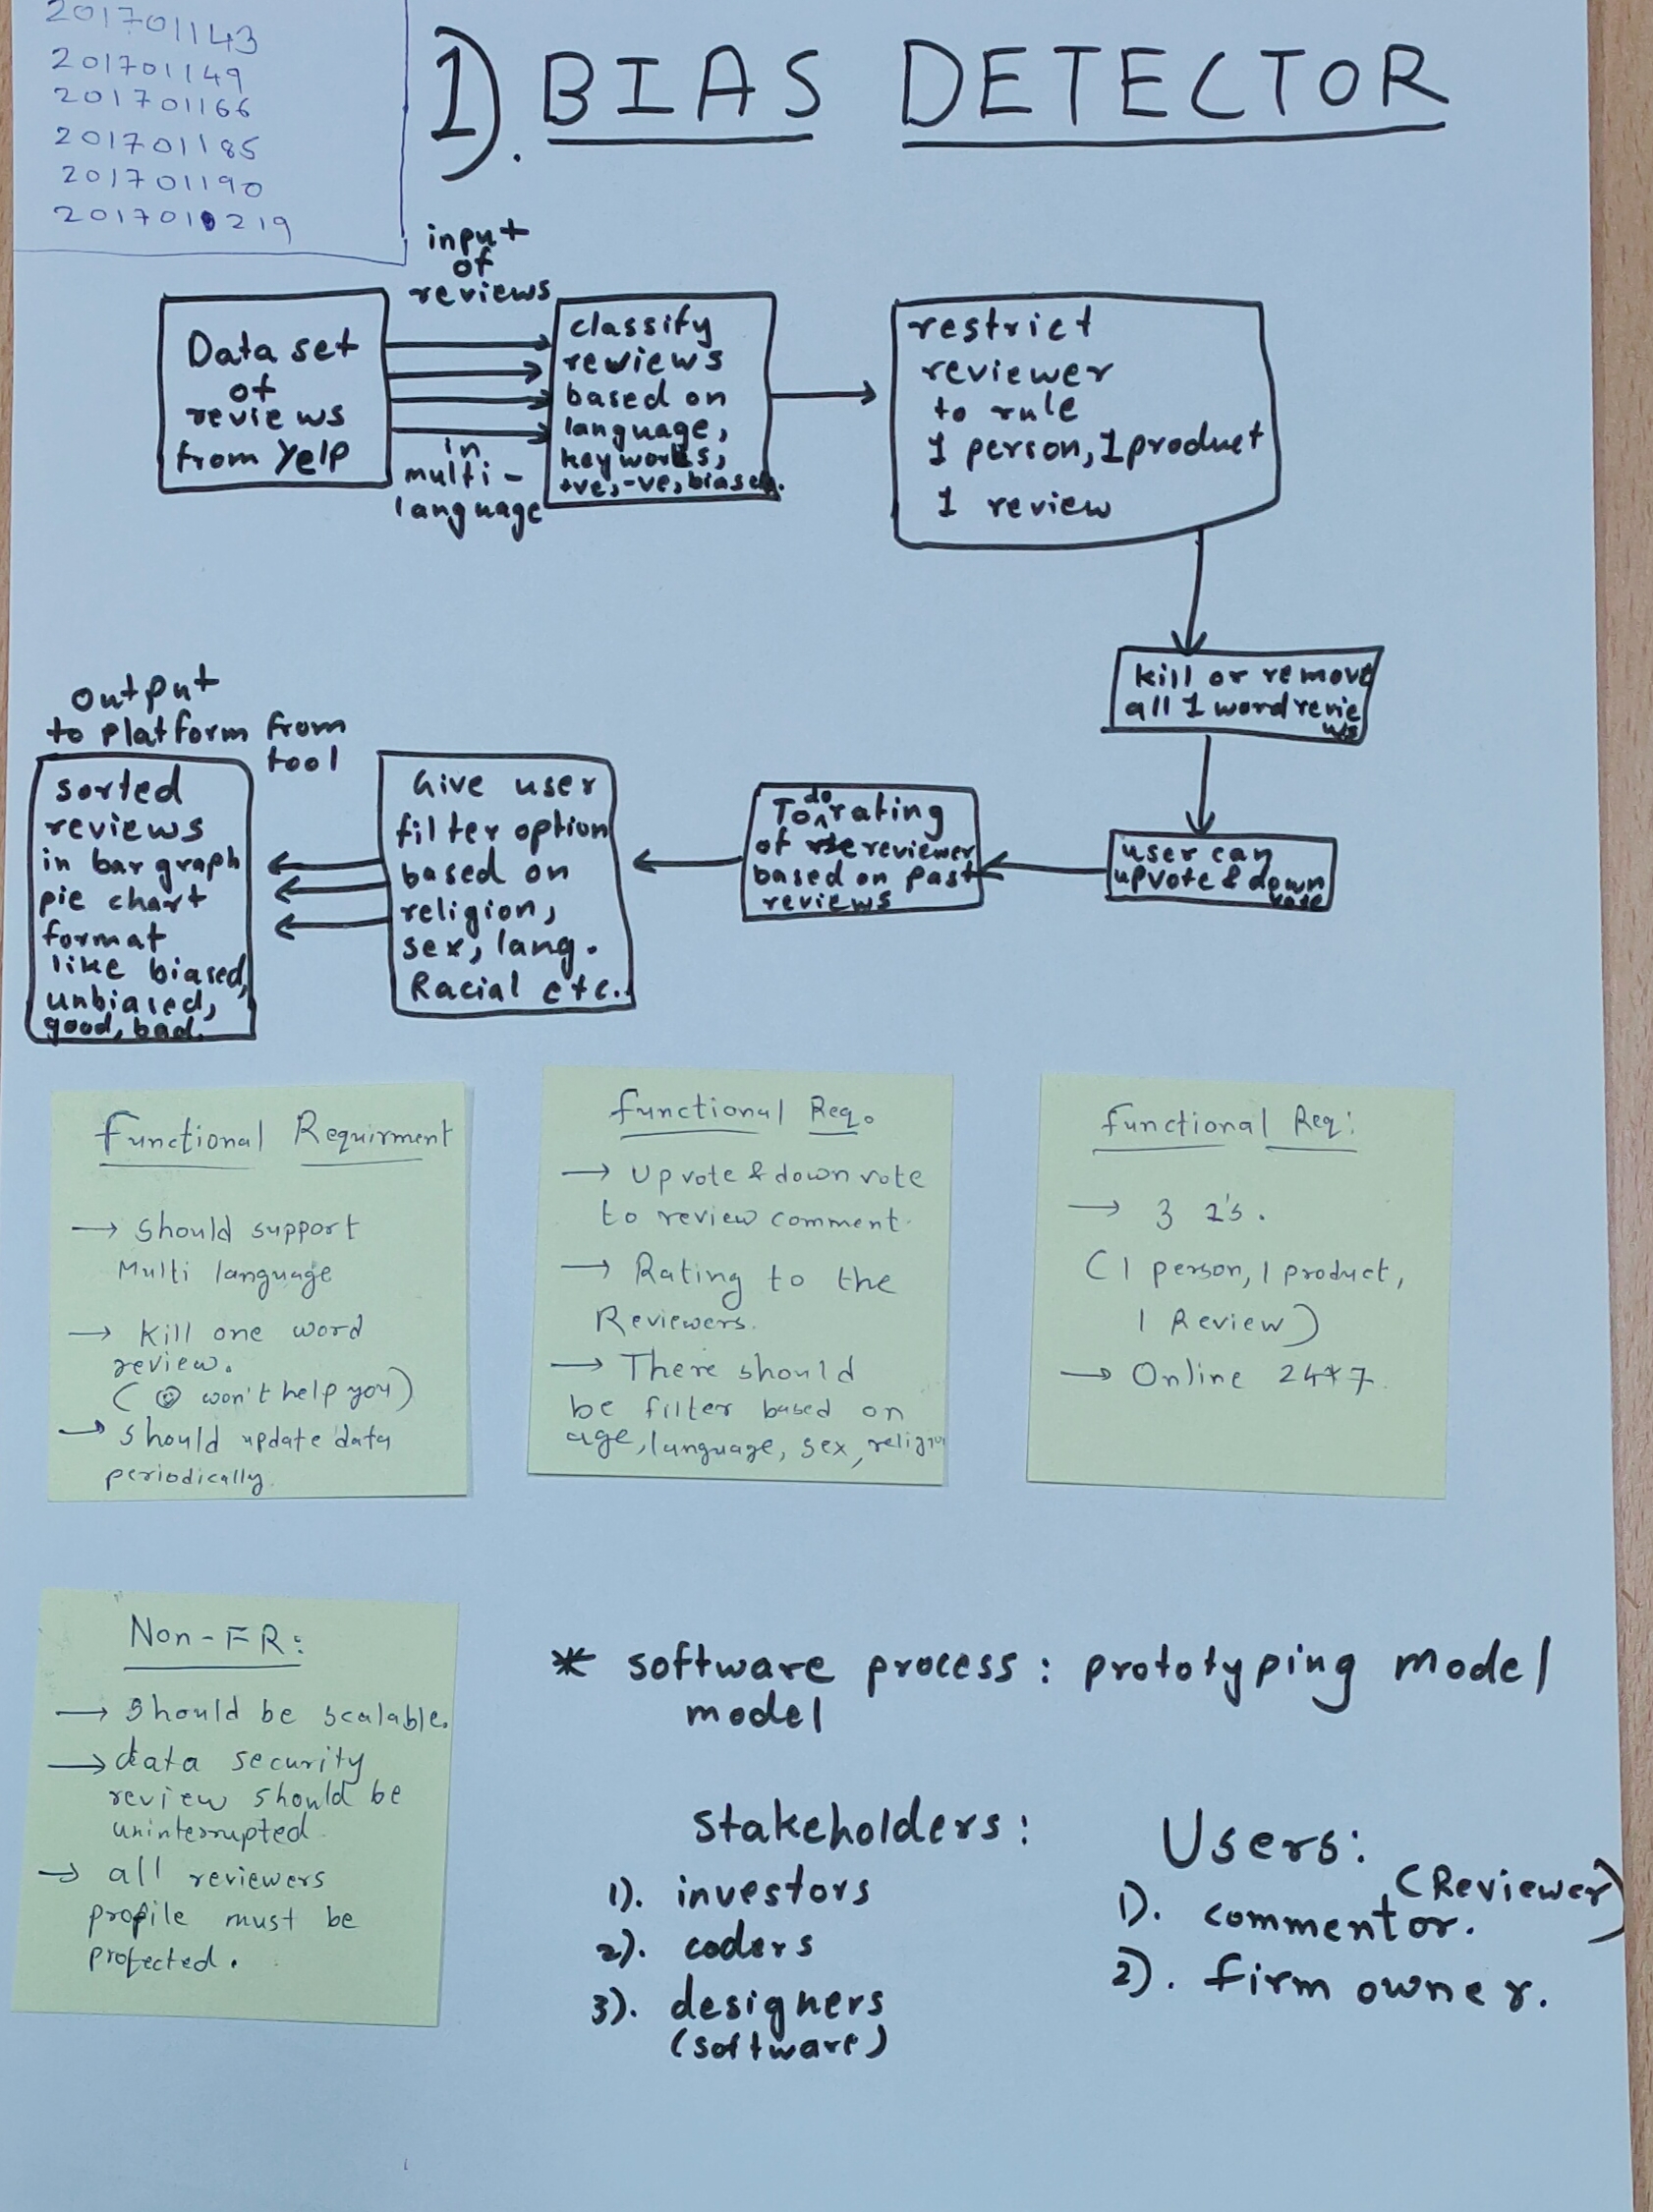 201701143
201701149
201701166
201701185
201701190
201701219
1). BIAS DETECTOR
input
of
reviews
Data set
of
reviews
from Yelp
in
multi-
language
classify
reviews
based on
language,
keyworks,
+ve, -ve, biased.
restrict
reviewer
to rule
1 person, 1 product
1 review
kill or remove
all 1 word revie
ws
user can
upvote & down
vote
To do rating
of reviewer
based on past
reviews
Give user
filter option
based on
religion,
sex, lang.
Racial etc..
output
to platform from
tool
sorted
reviews
in bar graph
pie chart
format
like biased,
unbiased,
good, bad.
Functional Requirment
→ Should support
Multi language
→ Kill one word
review.
( ☺ won't help you)
→ Should update data
periodically.
Functional Req.
→ Upvote & down vote
to review comment.
→ Rating to the
Reviewers.
→ There should
be filter based on
age, language, sex, religion
Functional Req:
→ 3 1's.
(1 person, 1 product,
1 Review)
→ Online 24*7.
Non-FR:
→ Should be scalable.
→ data security
review should be
uninterrupted.
→ all reviewers
profile must be
protected.
* software process : prototyping model
model
stakeholders :
1). investors
2). coders
3). designers
(software)
Users:
(Reviewer)
1). commentor.
2). firm owner.